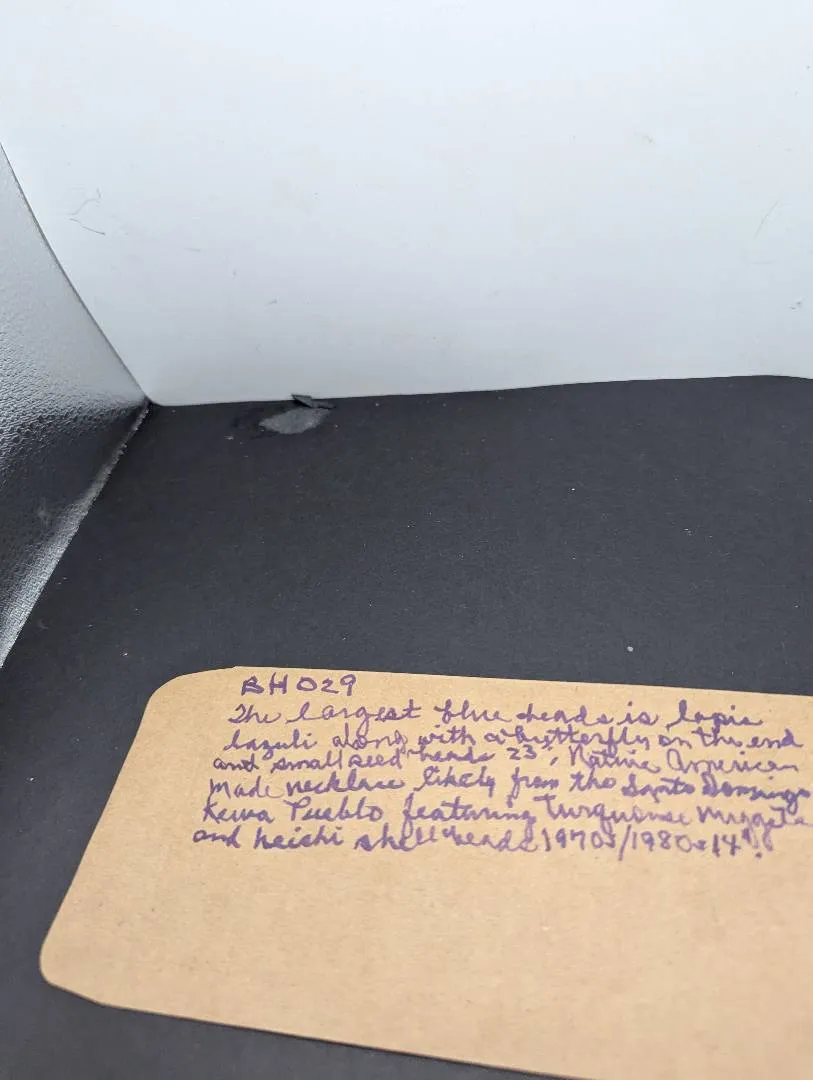 BH029
The largest blue beads is lapis
lazuli along with a butterfly on the end
and small seed beads 23", Native American
Made necklace likely from the Santo Domingo
Kewa Pueblo featuring Turquoise Nuggets
and heichi shell beads 1970s/1980s 14"